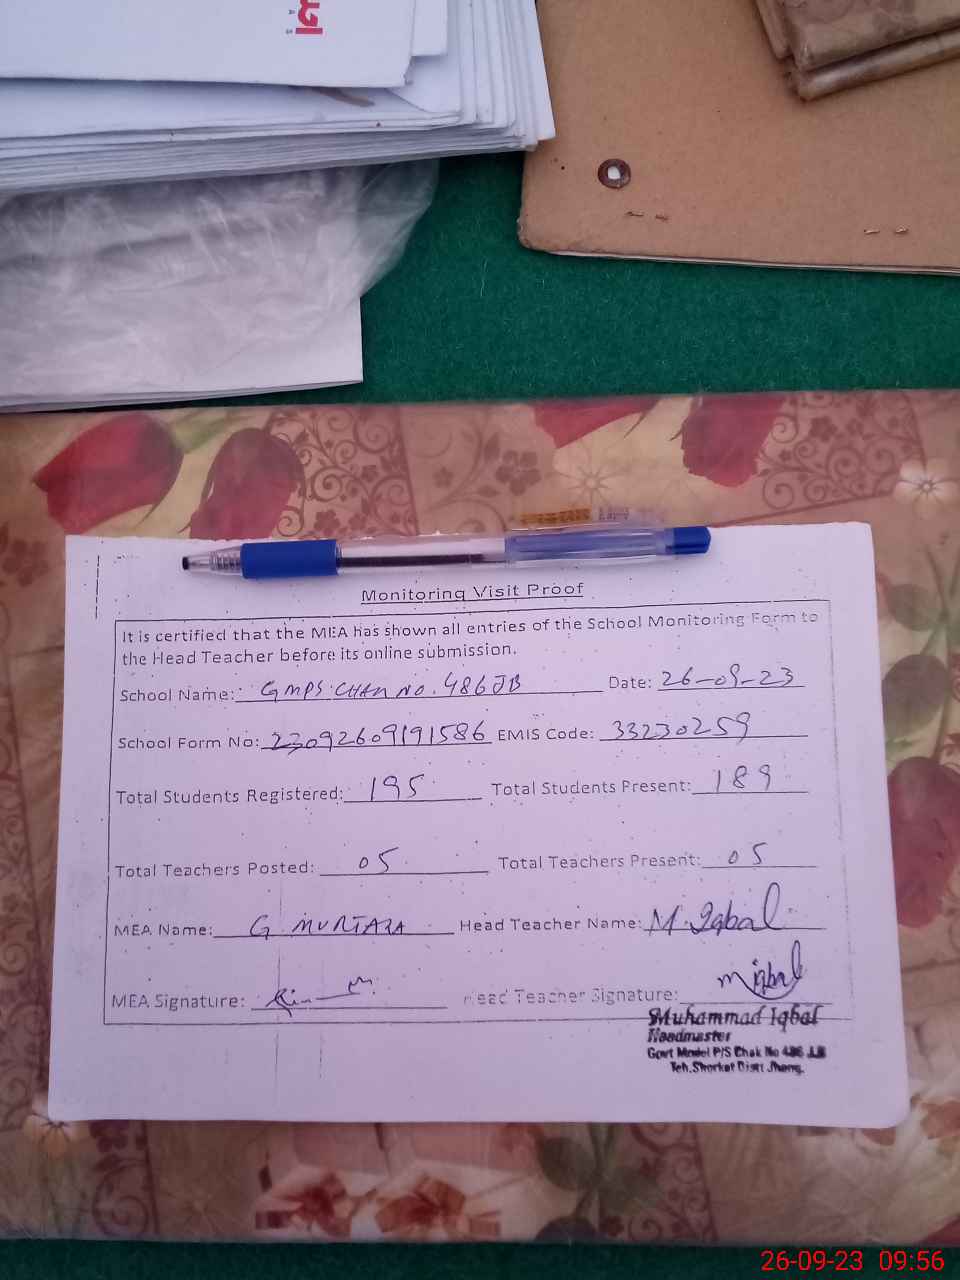 Monitoring Visit Proof
It is certified that the MEA has shown all entries of the School Monitoring Form to
the Head Teacher before its online submission.
School Name: GMPS CHAK NO. 486 JB Date: 26-09-23
School Form No: 23092609191586 EMIS Code: 33230259
Total Students Registered: 195 Total Students Present: 189
Total Teachers Posted: 05 Total Teachers Present: 05
MEA Name: G MURTAZA Head Teacher Name: M. Iqbal
MEA Signature: Head Teacher Signature: M iqbal
Muhammad Iqbal
Headmaster
Govt Model P/S Chak No 486 J.B
Teh. Shorkot Distt Jhang.
26-09-23 09:56